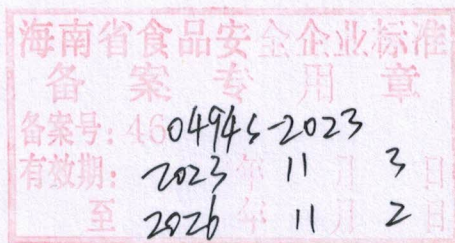 海南省食品安全企业标准
备案专用章
备案号: 460494S-2023
有效期: 2023年11月3日
至2026年11月2日